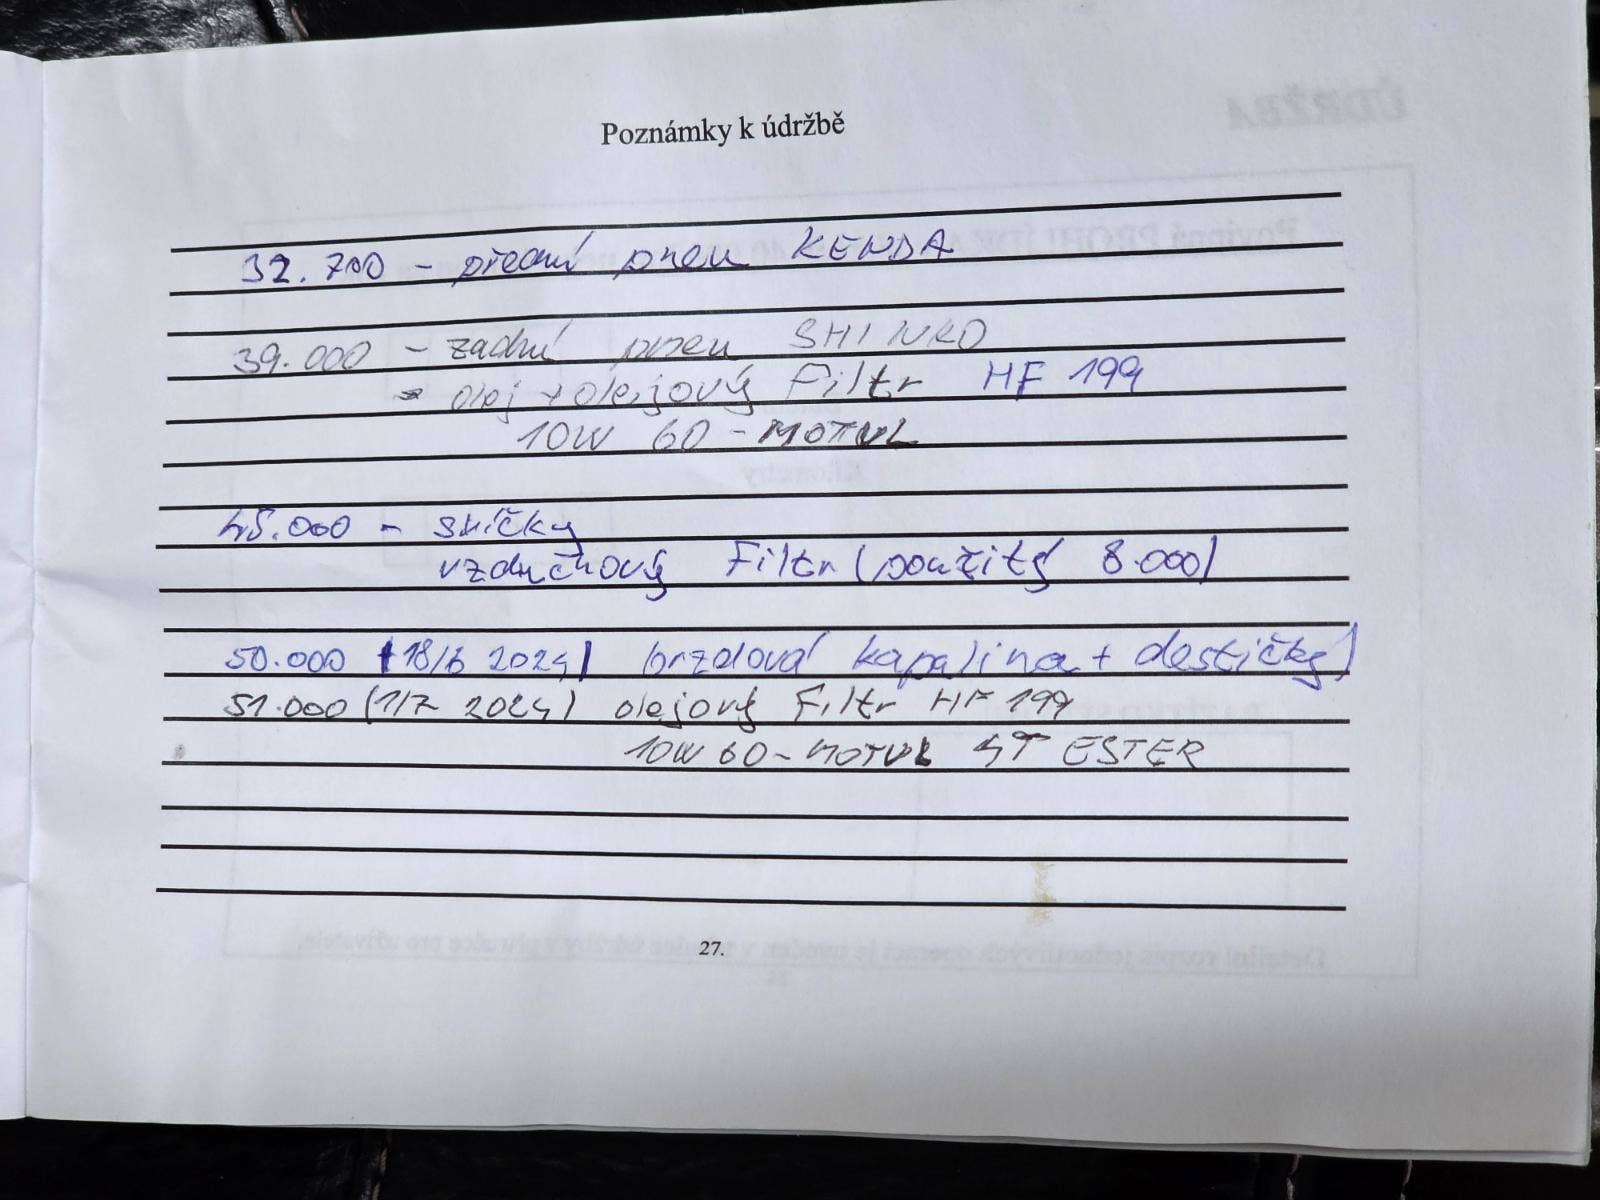 Poznámky k údržbě
32.700 - přední pneu KENDA
39.000 - zadní pneu SHINKO
- olej + olejový Filtr HF 199
10W 60 - MOTUL
45.000 - svíčky
vzduchový Filtr (použitý 8.000)
50.000 (18/6 2024) brzdová kapalina + destičky)
51.000 (1/7 2024) olejový Filtr HF 199
10W 60 - MOTUL 4T ESTER
27.